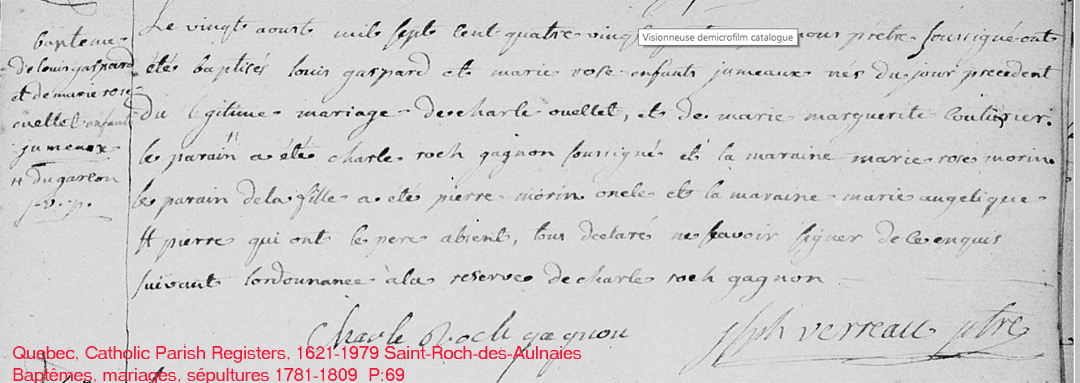 bapteme
de louis gaspard
et de marie rose
ouellet enfants
jumeaux
# du garcon
j. v. p.
Le vingt aoust mil sept cent quatre vingt nous prêtre soussigné ont
étés baptisés louis gaspard et marie rose enfants jumeaux nés du jour precedent
du legitime mariage de charle ouellet, et de marie marguerite couturier.
le parain # a été charle roch gagnon soussigné et la maraine marie rose morin
le parain de la fille a été pierre morin oncle et la maraine marie angelique
# pierre qui ont le pere absent, tous declaré ne scavoir signer de ce enquis
suivant lordonnance a la reserve de charle roch gagnon
Charle Roch gagnon
jsph verreau ptre
Visionneuse demicrofilm catalogue
Quebec, Catholic Parish Registers, 1621-1979 Saint-Roch-des-Aulnaies
Baptêmes, mariages, sépultures 1781-1809 P:69